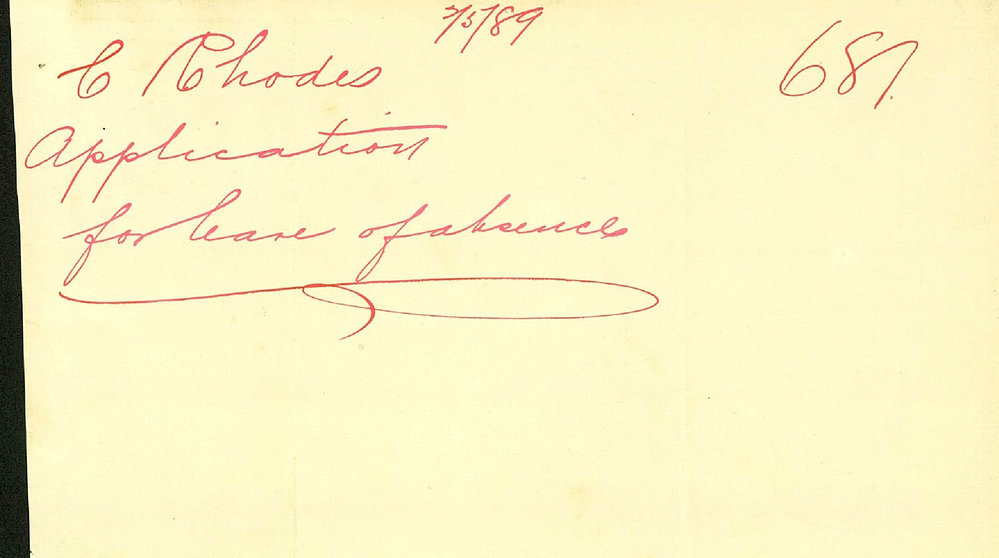 2/5/89
C Rhodes
681.
Application
for leave of absence